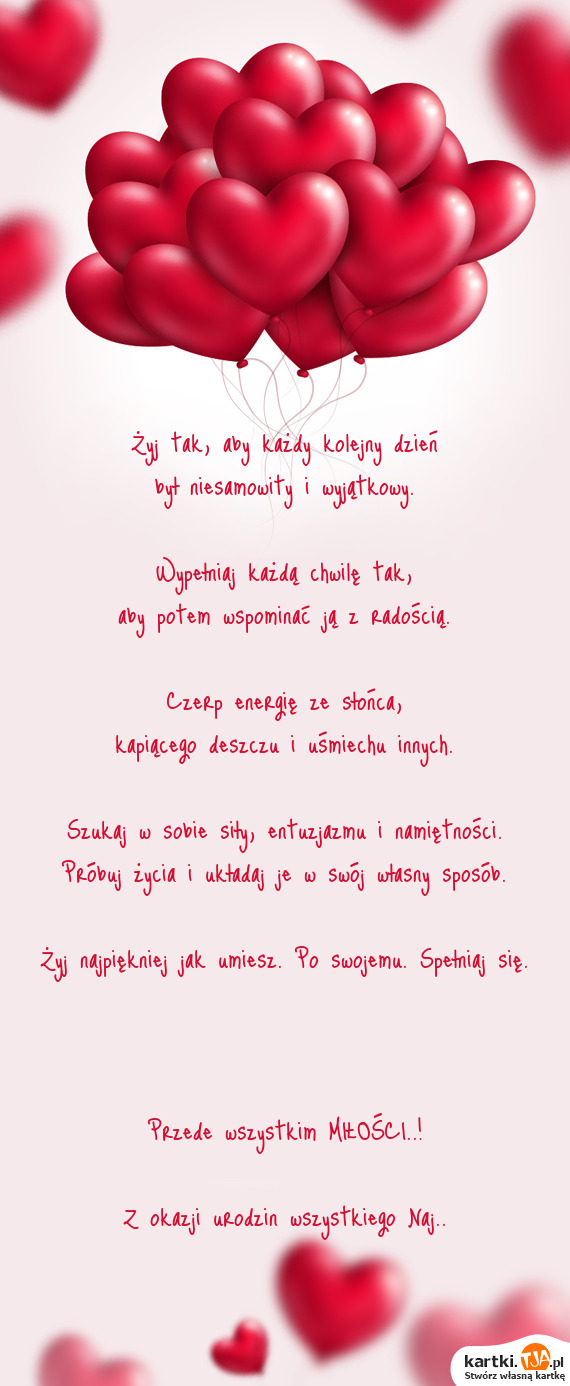 Żyj tak, aby każdy kolejny dzień
był niesamowity i wyjątkowy.
Wypełniaj każdą chwilę tak,
aby potem wspominać ją z radością.
Czerp energię ze słońca,
kapiącego deszczu i uśmiechu innych.
Szukaj w sobie siły, entuzjazmu i namiętności.
Próbuj życia i układaj je w swój własny sposób.
Żyj najpiękniej jak umiesz. Po swojemu. Spełniaj się.
Przede wszystkim MIŁOŚCI..!
Z okazji urodzin wszystkiego Naj..
kartki.TJA.pl
Stwórz własną kartkę